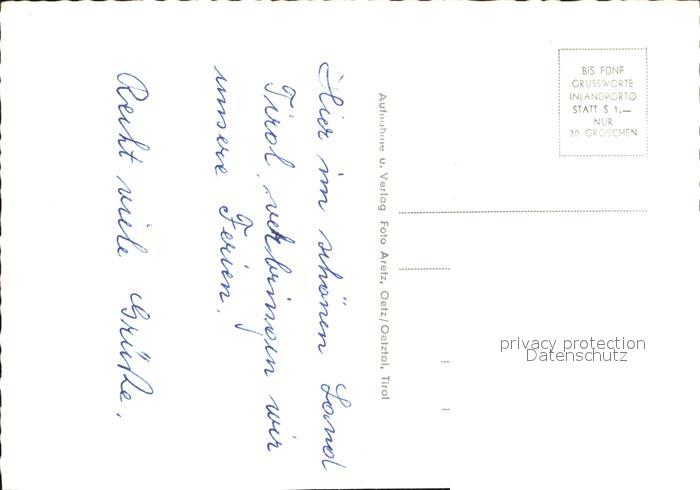 Hier im schönen Land
Tirol, verbringen wir
unsere Ferien.
Recht viele Grüße.
Aufnahme u. Verlag Foto Aretz, Oetz/Oetztal, Tirol
BIS FÜNF
GRUSSWORTE
INLANDPORTO
STATT S 1.—
NUR
30 GROSCHEN
privacy protection
Datenschutz